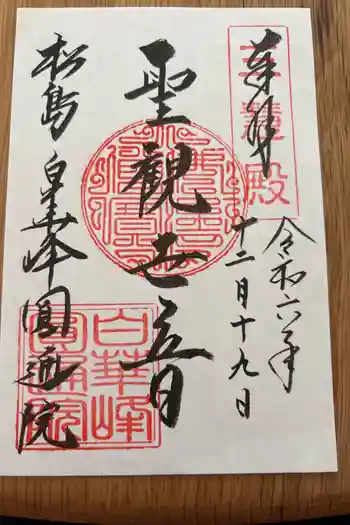 奉拝
菩薩殿
令和六年
十二月十九日
聖観世音
松島 白華峰圓通院
白華峰
圓通院